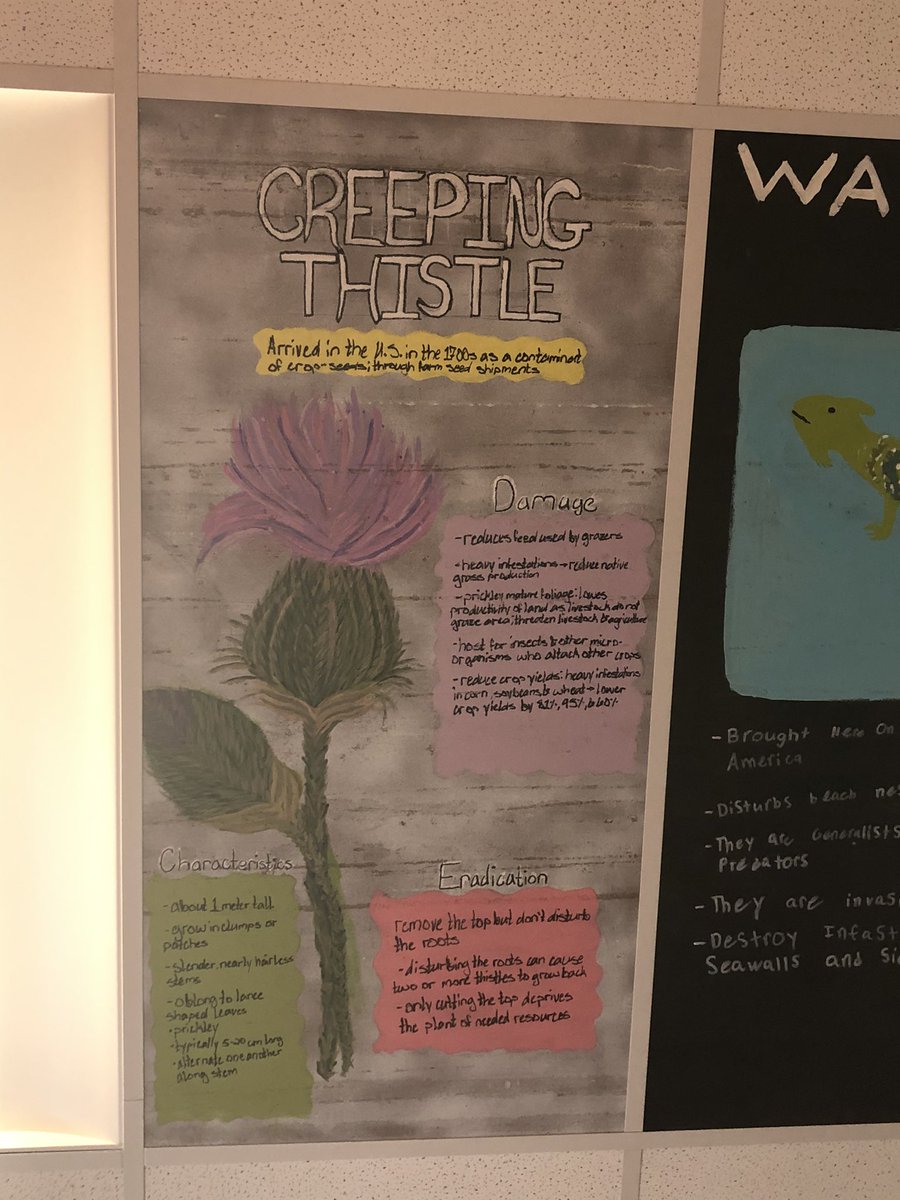 CREEPING
THISTLE
Arrived in the U.S. in the 1700s as a contaminant
of crop-seeds; through farm seed shipments
Damage
-reduces feed used by grazers
-heavy infestations→reduce native
grass production
-prickley mature foliage: lowes
productivity of land as livestock do not
graze area; threaten livestock & agriculture
-host for insects & other micro-
organisms who attack other crops
-reduce crop yields: heavy infestations
in corn, soybeans & wheat→lower
crop yields by 81%, 95%, & 60%
Characteristics
-about 1 meter tall
-grow in clumps or
patches
-slender, nearly hairless
stems
-oblong to lance
shaped leaves
•prickley
-typically 5-20 cm long
•alternate one another
along stem
Eradication
remove the top but don't disturb
the roots
-disturbing the roots can cause
two or more thistles to grow back
-only cutting the top deprives
the plant of needed resources
WA
-Brought Here On
America
-Disturbs beach nes
-They are Generalists
Predators
-They are invas
-Destroy Infast
Seawalls and Si